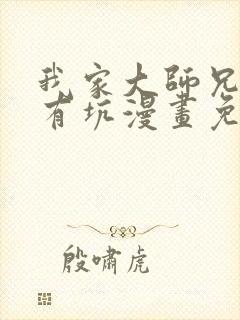 我家大師兄
有坑漫畫免
殷嘯虎